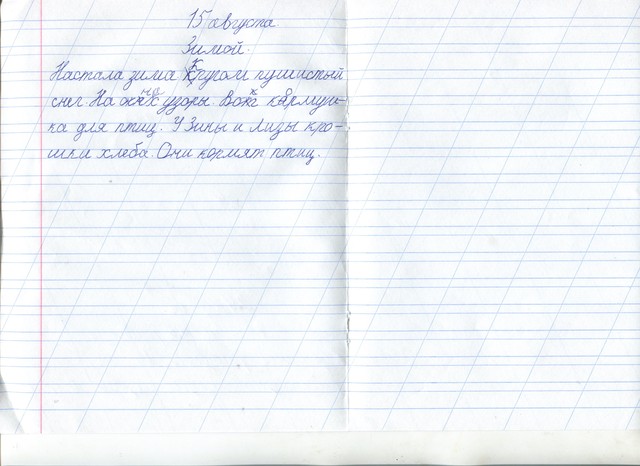 15 августа.
Зимой.
Настала зима Кругом пушистый
снег. На окнах узоры. кормуш-
ка для птиц. У Зины и Лизы кро-
шки хлеба. Они кормят птиц.